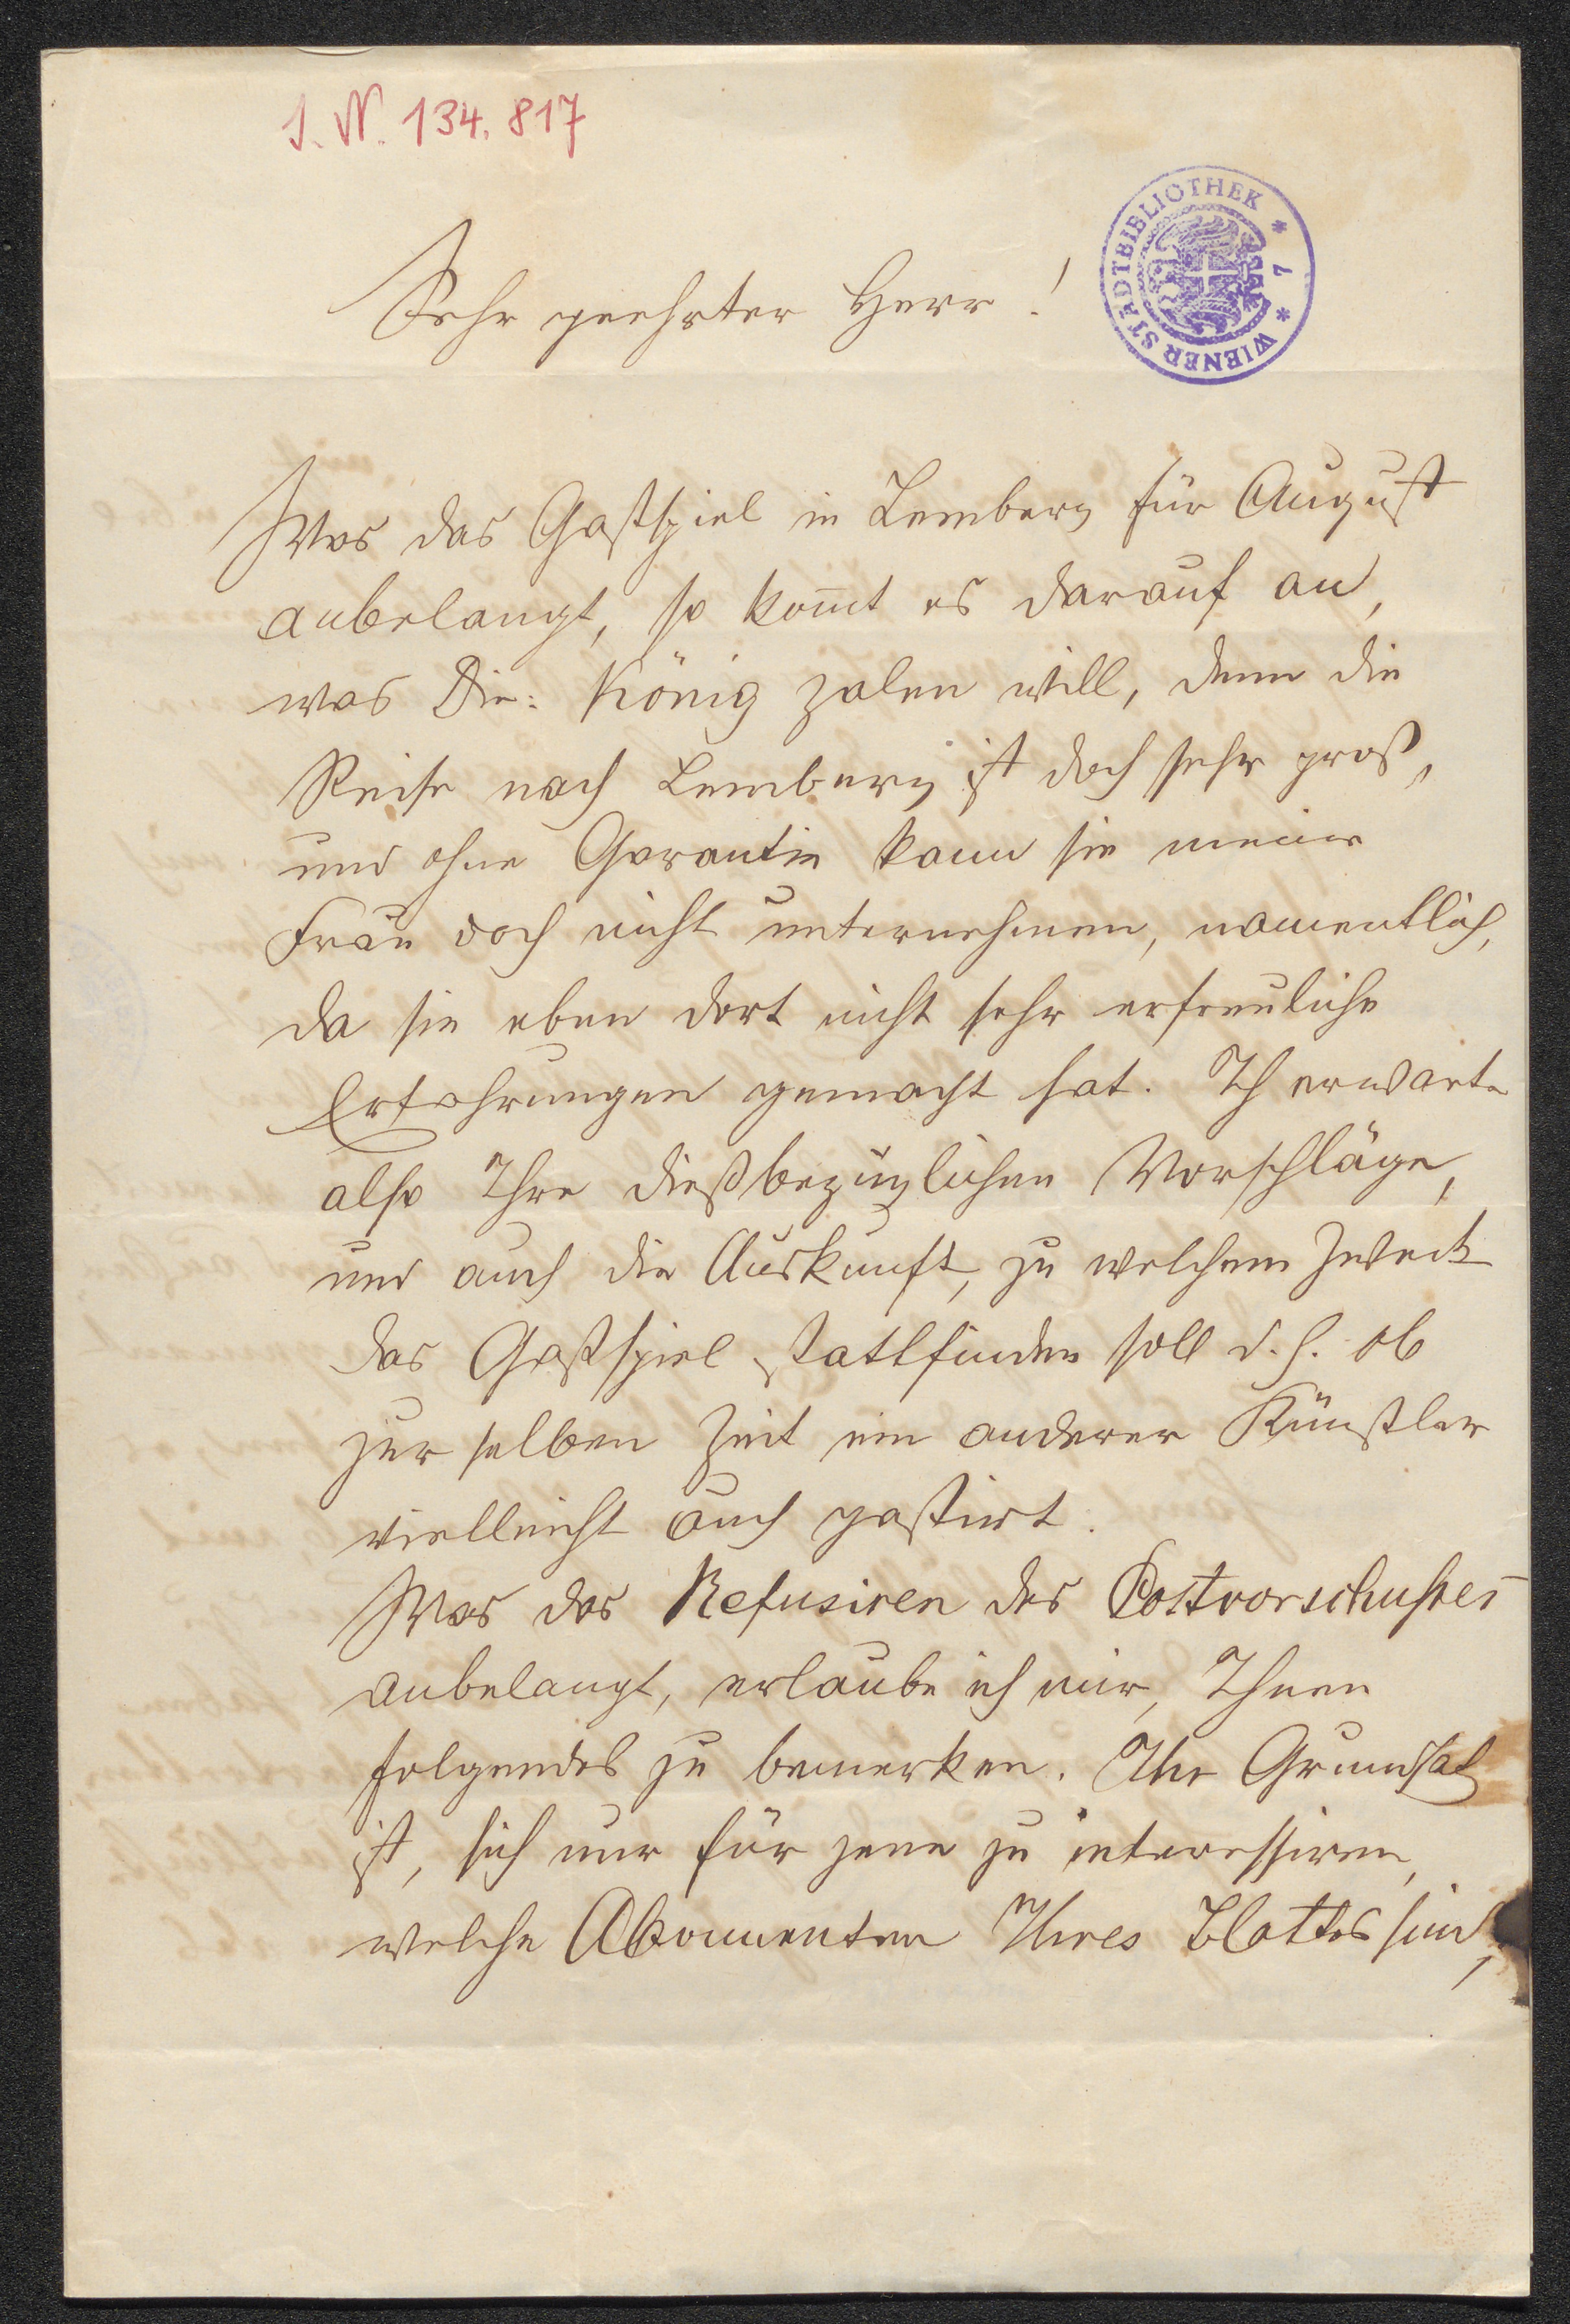 I. N. 134.817
WIENER STADTBIBLIOTHEK * 7 *
Sehr geehrter Herr!
Was das Gastspiel in Lemberg für August
anbelangt, so kom̄t es darauf an,
was Dir: König zalen will, denn die
Reise nach Lemberg ist doch sehr groß,
und ohne Garantie kann sie meine
Frau doch nicht unternehmen, namentlich,
da sie eben dort nicht sehr erfreuliche
Erfahrungen gemacht hat. Ich erwarte
also Ihre dießbezüglichen Vorschläge,
und auch die Auskunft, zu welchem Zweck
das Gastspiel stattfinden soll d. h. ob
zur selben Zeit ein anderer Künstler
vielleicht auch gastirt.
Was das Refusiren des Postvorschußes
anbelangt, erlaube ich mir, Ihnen
folgendes zu bemerken. Ihr Grundsatz
ist, sich nur für jene zu interessiren,
welche Abonnenten Ihres Blattes sind,